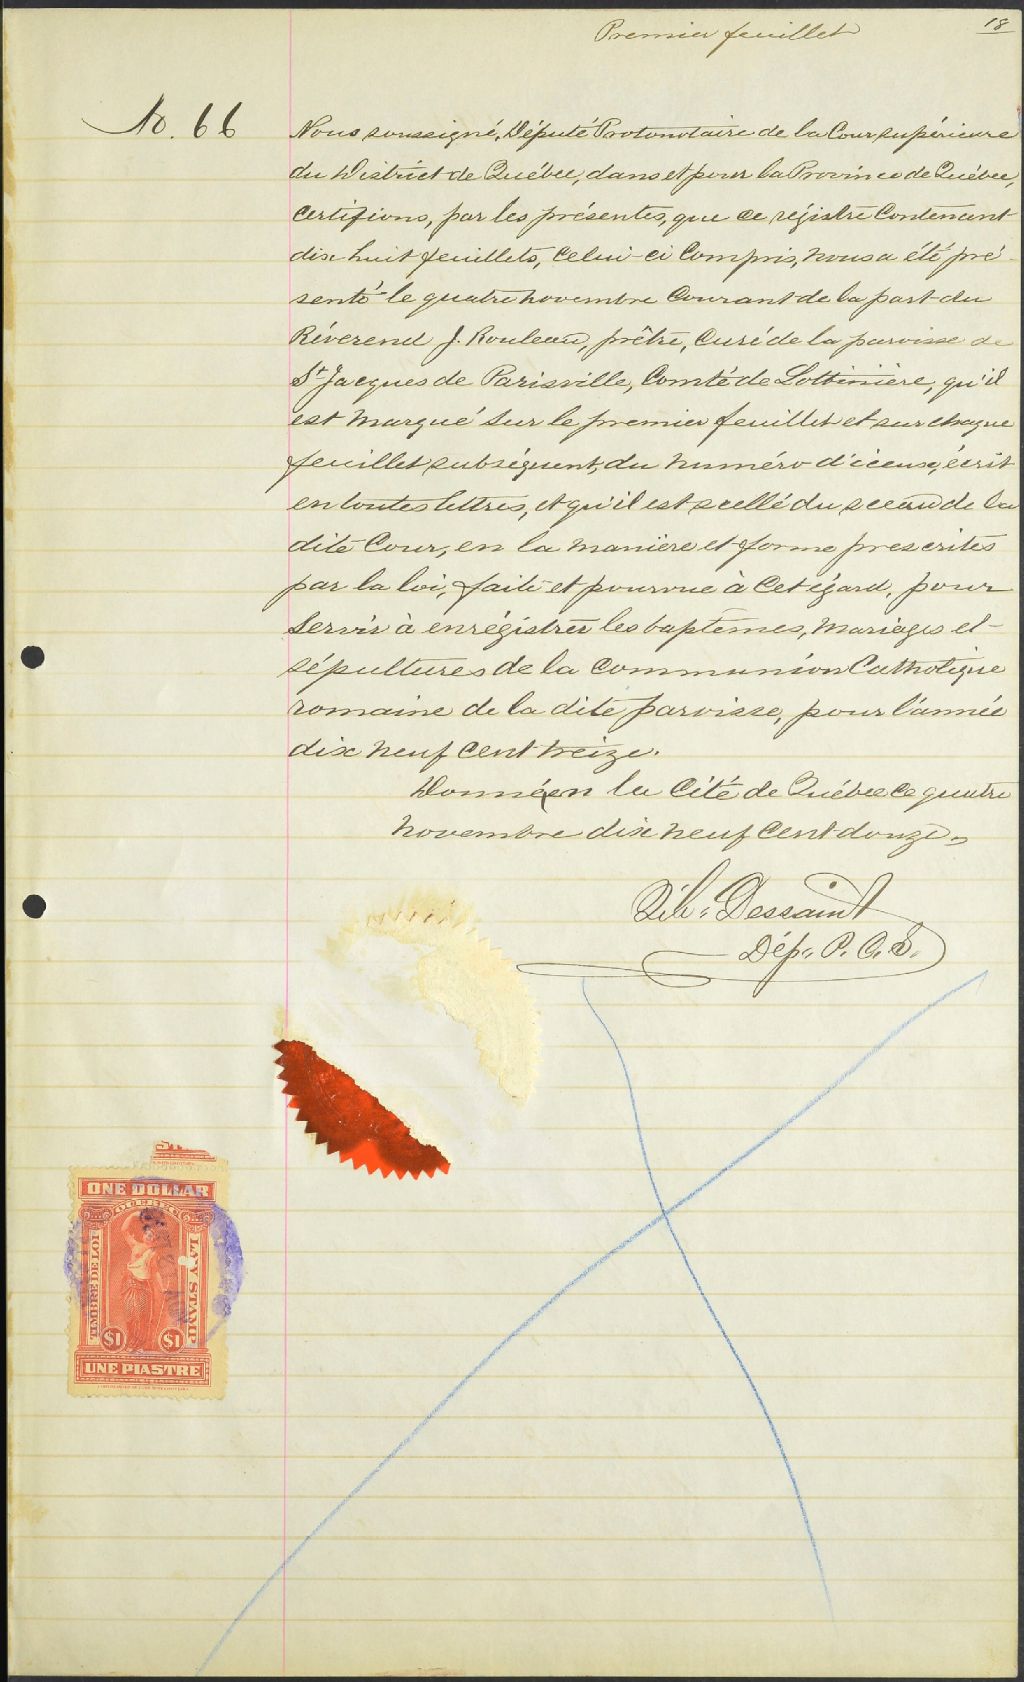 Premier feuillet
18
No. 66
Nous soussigné, Député Protonotaire de la Cour supérieure
du District de Québec, dans et pour la Province de Québec,
certifions, par les présentes, que ce régistre contenant
dix huit feuillets, celui-ci compris, nous a été pré-
senté le quatre novembre courant de la part du
Révérend J. Rouleau, prêtre, curé de la paroisse de
St Jacques de Parisville, Comté de Lotbinière, qu'il
est marqué sur le premier feuillet et sur chaque
feuillet subséquent, du numéro d'iceux, écrit
en toutes lettres, et qu'il est scellé du sceau de la
dite Cour, en la manière et forme prescrites
par la loi, faite et pourvue à cet égard, pour
servir à enrégistrer les baptêmes, mariages et
sépultures de la communion Catholique
romaine de la dite paroisse, pour l'année
dix neuf cent treize.
Donné en la Cité de Québec ce quatre
novembre dix neuf cent douze,
Dessaint
Dép. P. C. S.
ONE DOLLAR
QUEBEC
TIMBRE DE LOI
LAW STAMP
$1 $1
UNE PIASTRE